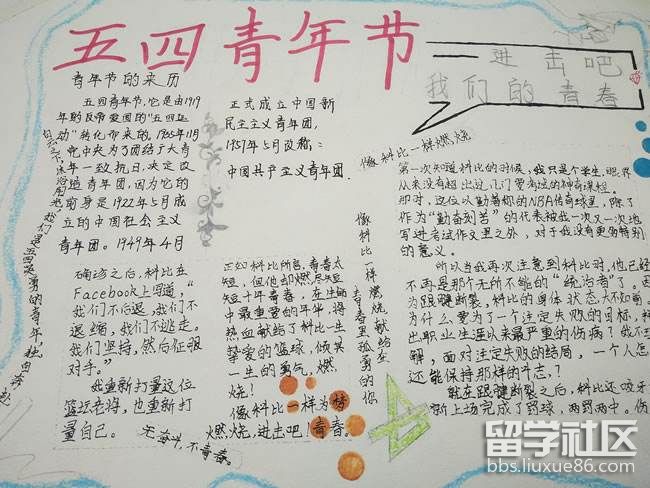 五四青年节
进击吧
我们的青春
青年节的来历
五四青年节,它是由1919
年的反帝爱国的"五四运
动"转化而来的,1935年11月
中央为了团结广大青
年一致抗日,决定改
造青年团,因为它的
前身是1922年5月成
立的中国社会主义
青年团。1949年4月
正式成立中国新
民主主义青年团,
1957年5月改称:
中国共产主义青年团.
像科比一样燃烧
第一次知道科比的时候,我只是个学生,眼界
从来没有超出过几门要考试的神奇课程.
那时,这位以勤奋称的NBA传奇球星,除了
作为"勤奋刻苦"的代表被我一次又一次地
写进考试作文里之外,对于我没有更多特别
的意义。
所以当我再次注意到科比时,他已经
不再是那个无所不能的"统治者"了。因
为跟腱断裂,科比的身体状态大不如前。
为什么要为了一个注定失败的目标,
出职业生涯以来最严重的伤病?我不
解,面对注定失败的结局,一个人怎
还能保持那样的斗志?
就在跟腱断裂之后,科比还咬牙
新上场完成了罚球,两罚两中。伤
确诊之后,科比在
Facebook上写道,"
我们不后退,我们不
退缩,我们不逃走。
我们坚持,然后征服
对手。"
我重新打量这位
篮坛老将,也重新打
量自己。
正如科比所言,青春太
短,但他却燃尽
短十年青春,在生命
中最重要的年华,将
热血献给了科比一生
挚爱的篮球,倾其
一生的勇气,燃
烧!
像科比一样为梦
燃烧,进击吧!青春。
像科比一样燃烧献给在
青春里孤勇的你
无海兴,不青春。
留学社区
bbs.liuxue86.com